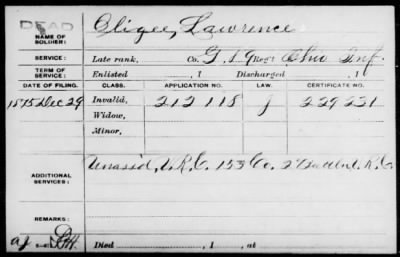 DEAD
NAME OF SOLDIER: Eligee, Lawrence
SERVICE: Late rank, Co. G, 1 9 Reg't Ohio Inf.
TERM OF SERVICE: Enlisted , 1 Discharged , 1
DATE OF FILING. CLASS. APPLICATION NO. LAW. CERTIFICATE NO.
1875 Dec 29 Invalid, 212 118 J 229 231
Widow,
Minor,
ADDITIONAL SERVICES: Unass'd, V.R.C. 153 Co. 2 Batt'n V.R.C.
REMARKS:
Died , 1 , at